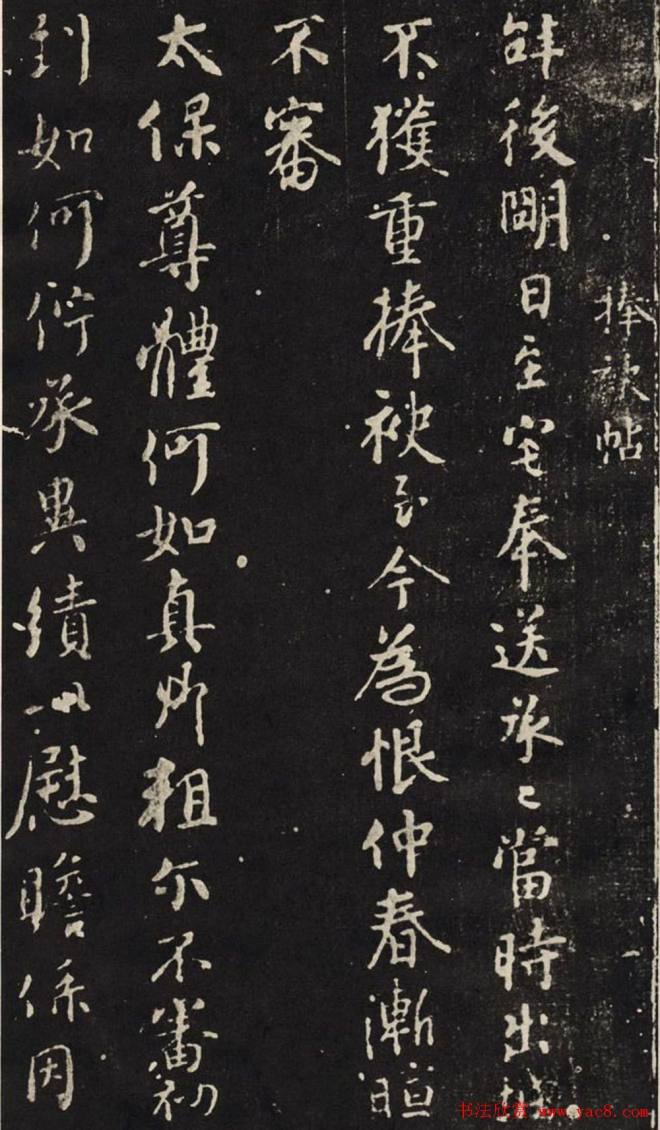 捧袂帖
後明日至宅奉送承已當時出城
不獲重捧袂至今為恨仲春漸暄
不審
太保尊體何如真卿粗尔不審初
到如何佇承異績以慰瞻係因
书法欣赏 www.yac8.com